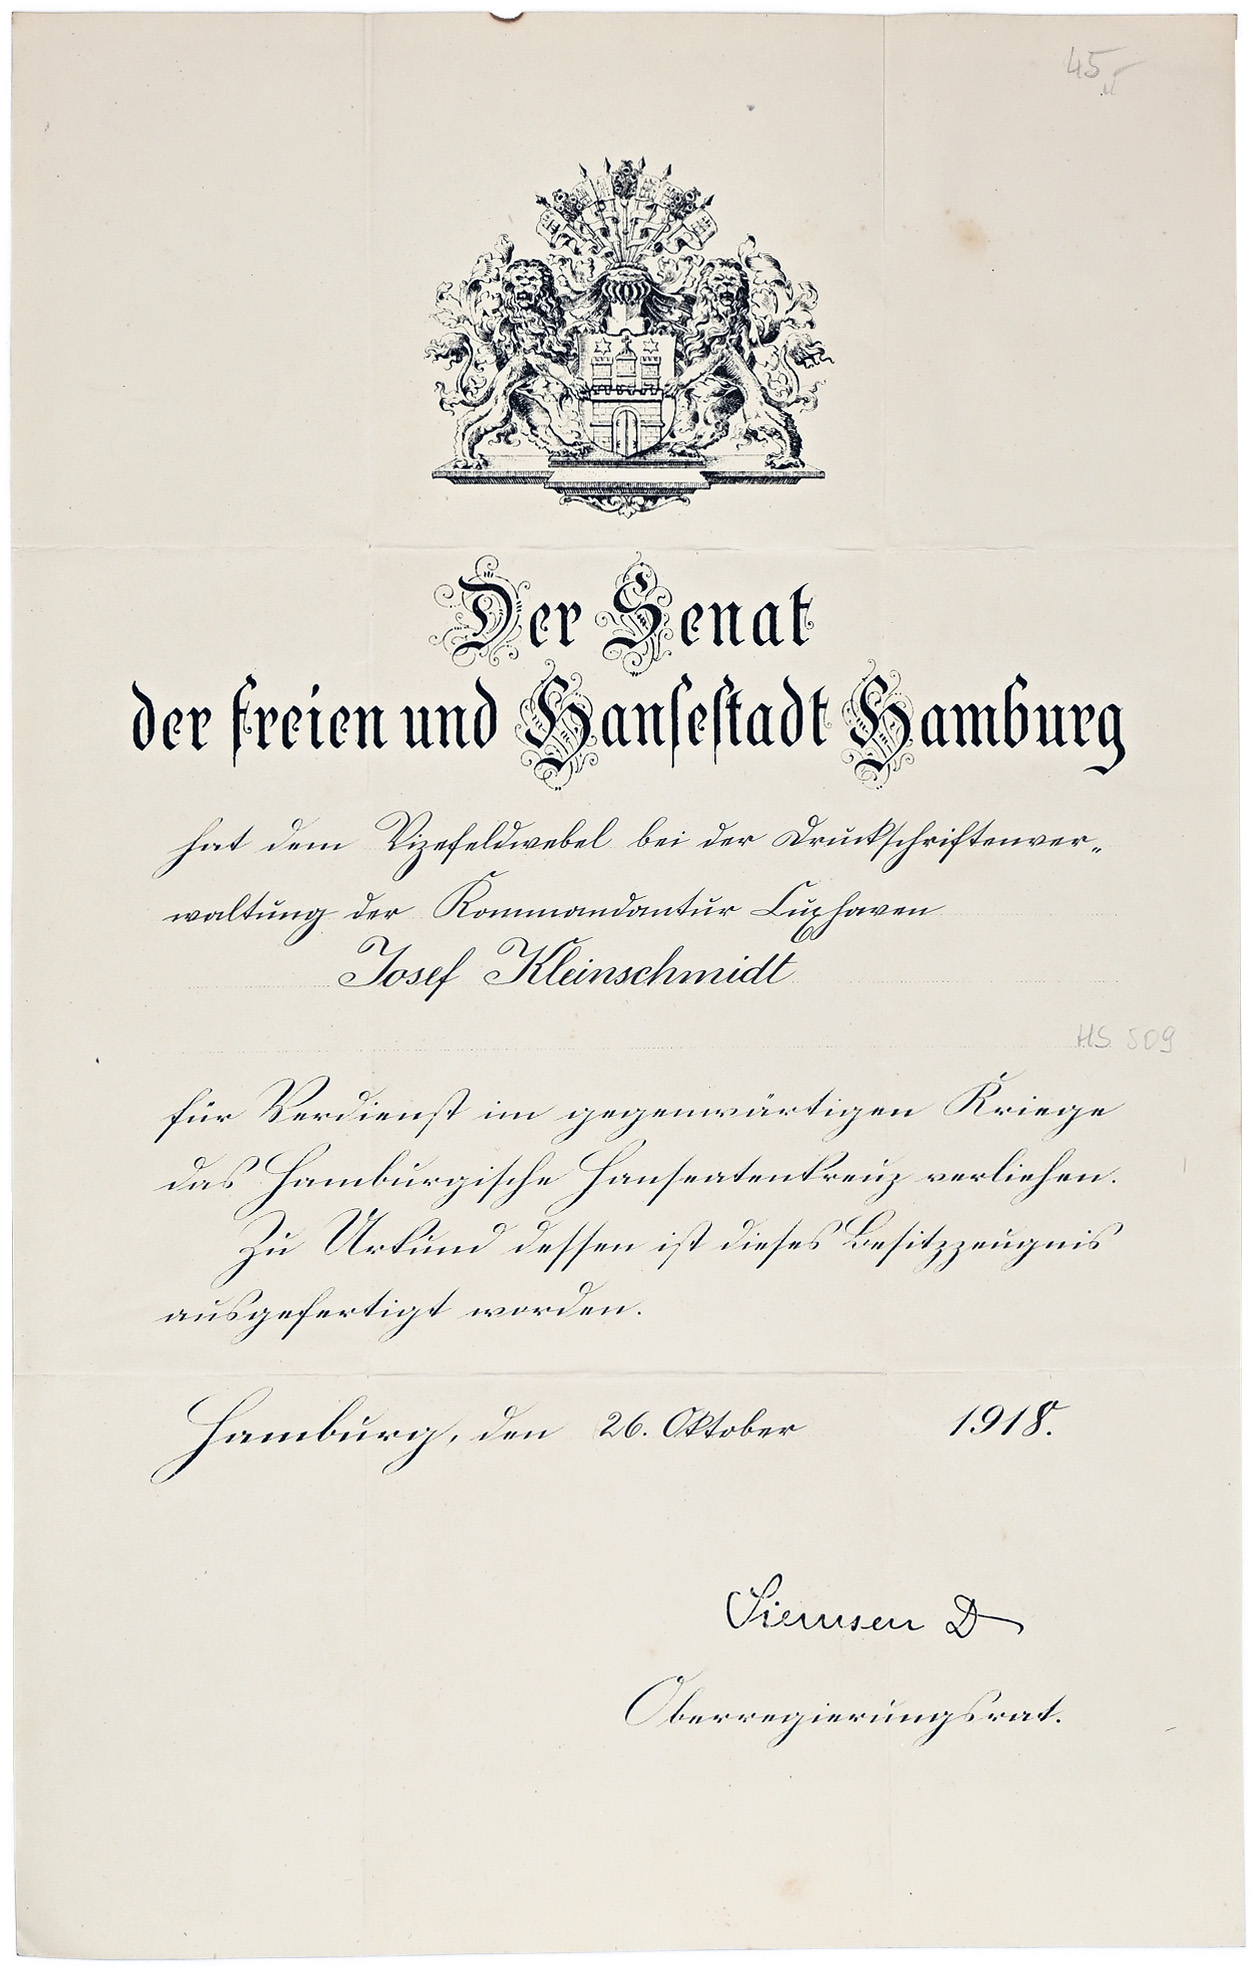 45
Der Senat
der freien und Hansestadt Hamburg
hat dem Vizefeldwebel bei der Druckschriftenver-
waltung der Kommandantur Cuxhaven
Josef Kleinschmidt
HS 509
für Verdienst im gegenwärtigen Kriege
das Hamburgische Hanseatenkreuz verliehen.
Zu Urkund dessen ist dieses Besitzzeugnis
ausgefertigt worden.
Hamburg, den 26. Oktober 1918.
Siemsen D
Oberregierungsrat.